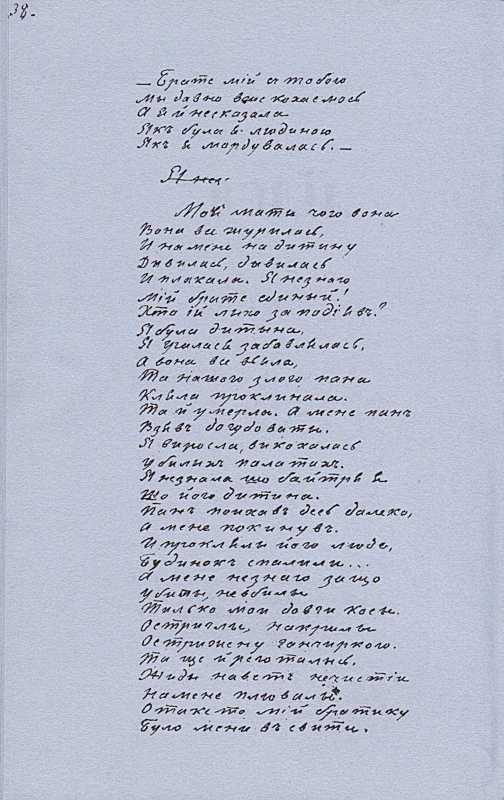 38.
— Брате мій съ тобою
Мы давно вже кохаемось
А я й несказала
Якъ була я людиною
Якъ я мордувалась. —
Я не
Моя мати чого вона
Вона все журилась,
И намене на дитину
Дивилась, дивилась
И плакала. Я незнаю
Мій брате единый!
Хто ій лыхо заподіявъ?
Я була дитына,
Я гралась забавлялась,
А вона все вяла,
Та нашого злого пана
Кляла проклинала.
Та й умерла. А мене панъ
Взявъ догудовати.
Я виросла, викохалась
У билыхъ палатахъ.
Я незнала що байстря я
Що його дитина.
Панъ поихавъ десь далеко,
А мене покинувъ.
И прокляли його люде,
Будинокъ спалили...
А мене незнаю защо
Убити, невбили
Тилько мои довги косы.
Остриглы, накрылы
Острижену ганчиркою.
Та ще й реготались.
Жиды наветь нечистіи
Намене плювалы.
Отаке то мій братику
Було мени въ свити.